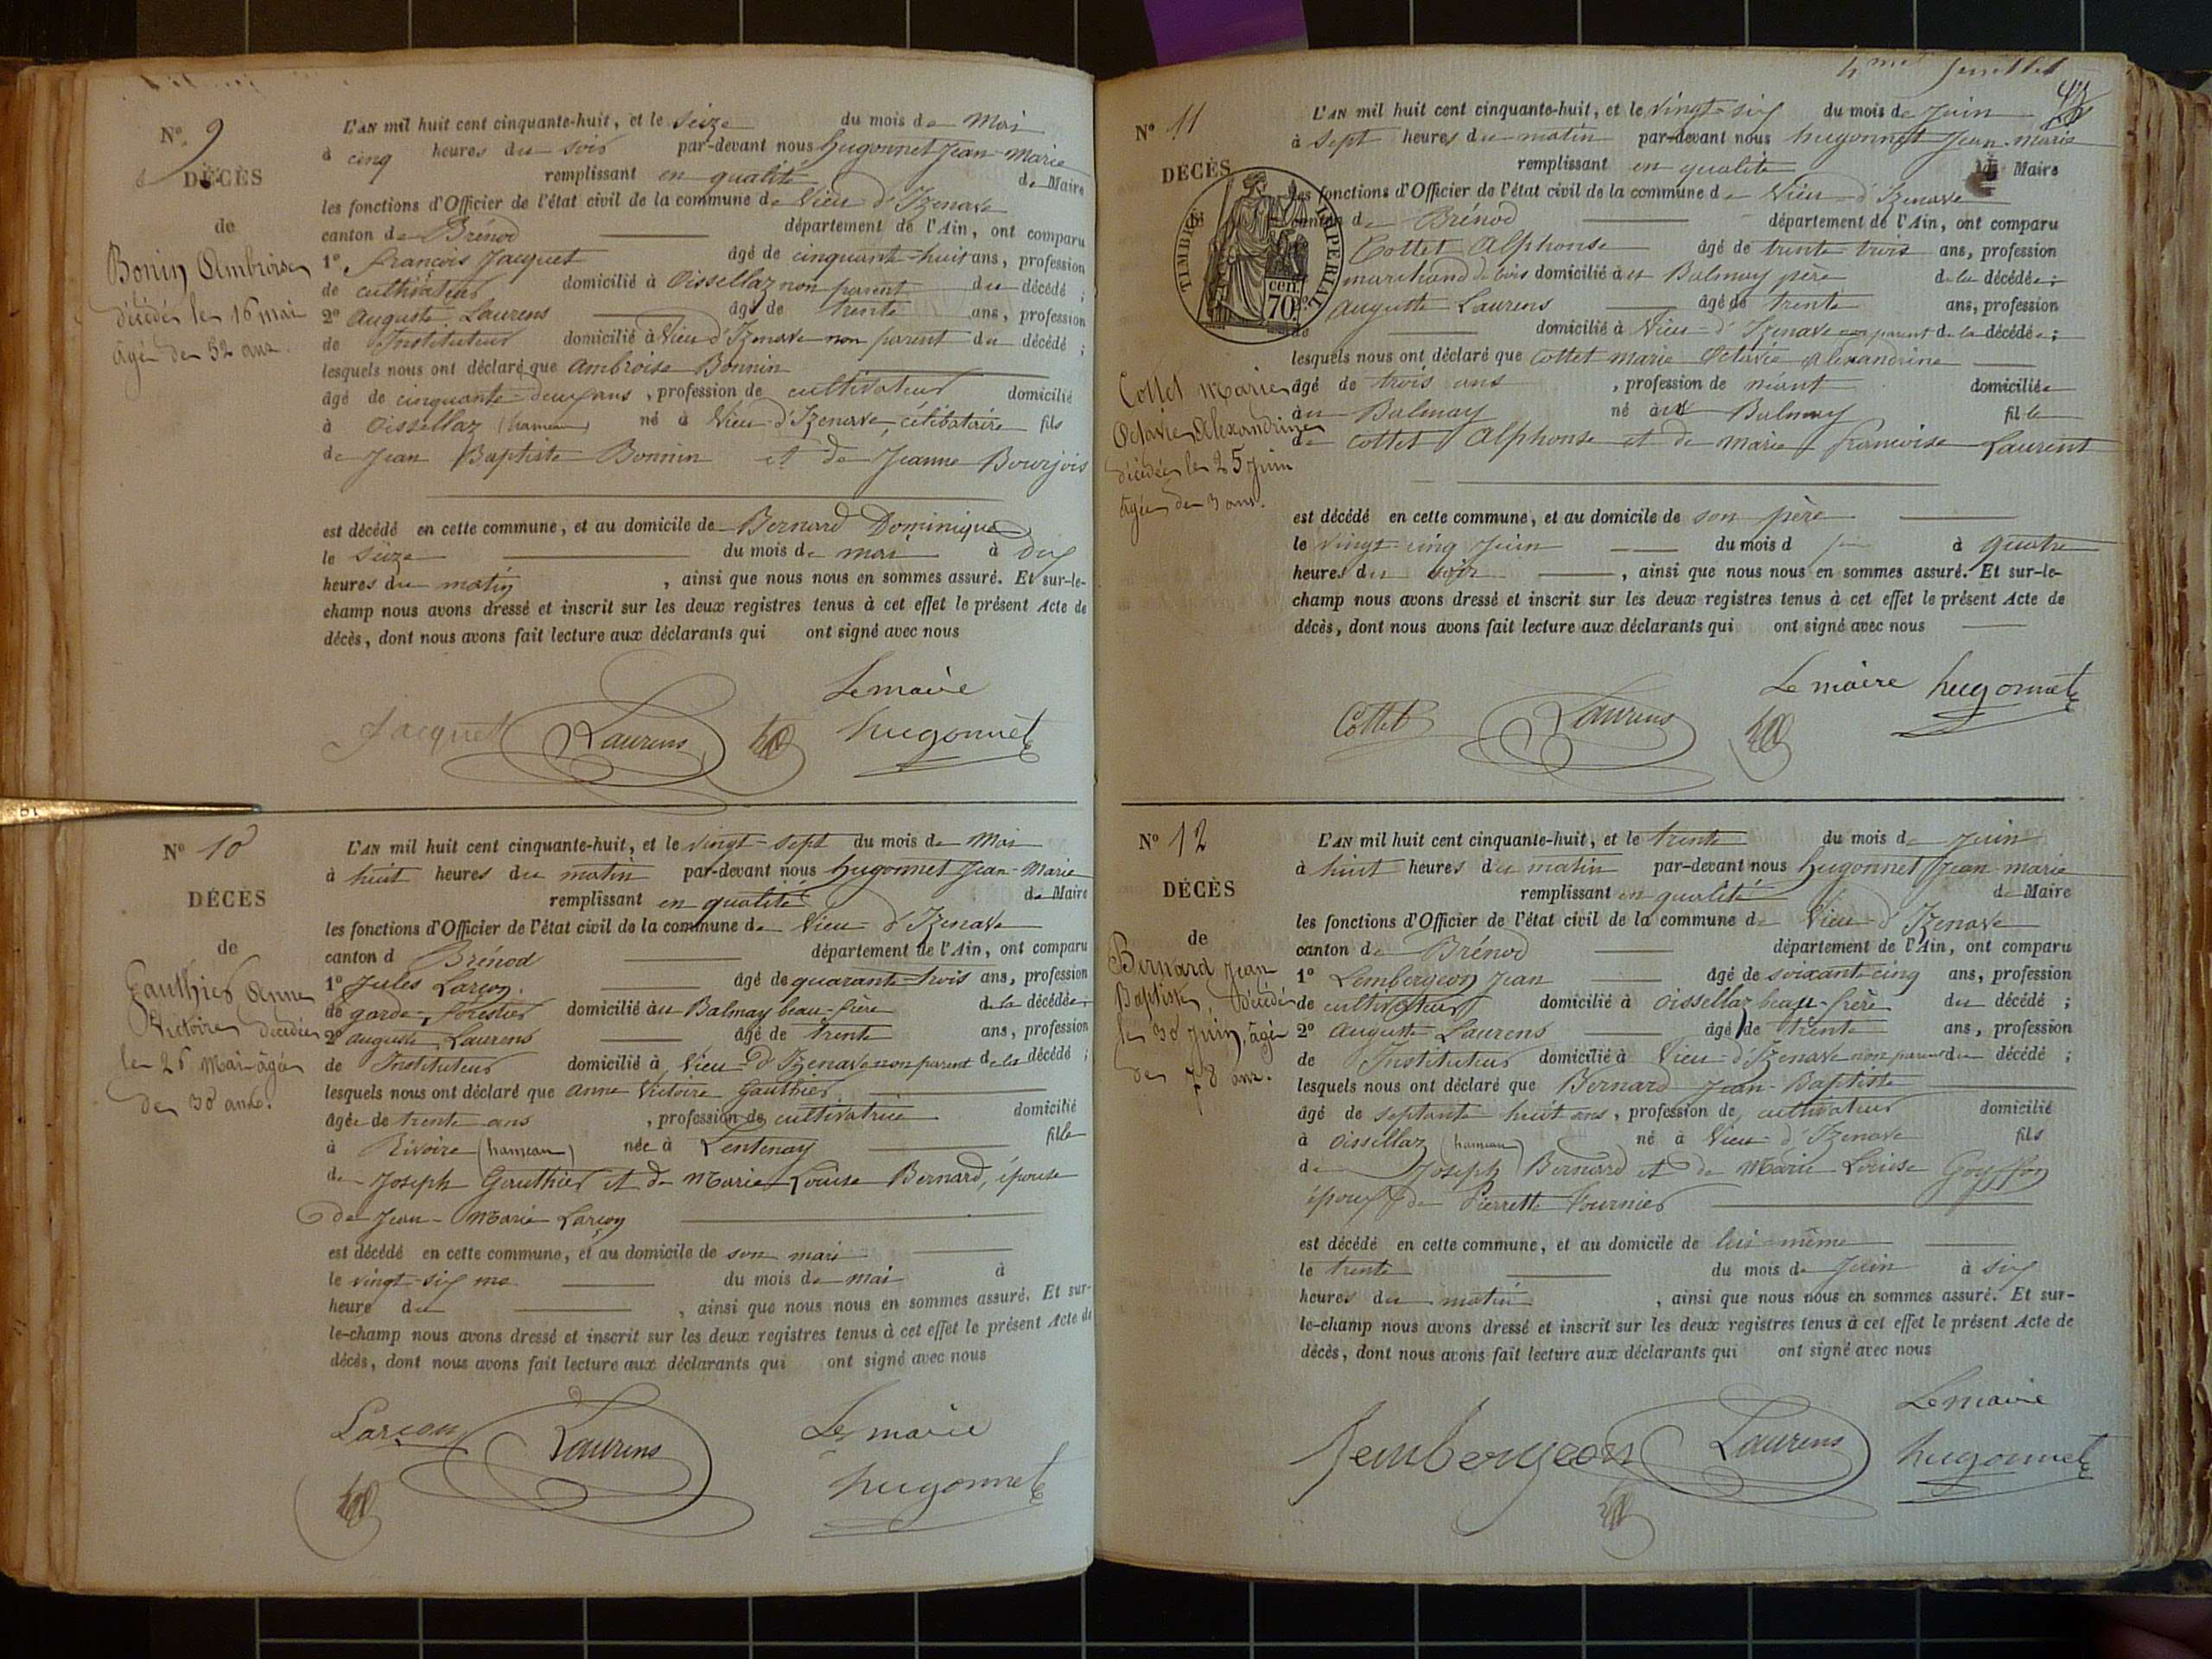 Nº 9
DÉCÈS
de
Bonin Ambroise
décédé le 16 mai
âgé de 52 ans.
L'AN mil huit cent cinquante-huit, et le seize du mois de Mai
à cinq heures du soir par-devant nous hugonnet Jean-Marie
remplissant en qualité de Maire
les fonctions d'Officier de l'état civil de la commune de Vieu d'Izenave
canton de Brénod département de l'Ain, ont comparu
1º françois Jacquet âgé de cinquante-huit ans, profession
de cultivateur domicilié à Oissellaz non parent du décédé ;
2º Auguste Laurens âgé de trente ans, profession
de Instituteur domicilié à Vieu d'Izenave non parent du décédé ;
lesquels nous ont déclaré que Ambroise Bonnin
âgé de cinquante-deux ans, profession de cultivateur domicilié
à Oissellaz (hameau) né à Vieu-d'Izenave, célibataire fils
de Jean Baptiste Bonnin et de Jeanne Bourjois
est décédé en cette commune, et au domicile de Bernard Dominique
le seize du mois de mai à dix
heures du matin, ainsi que nous nous en sommes assuré. Et sur-le-
champ nous avons dressé et inscrit sur les deux registres tenus à cet effet le présent Acte de
décès, dont nous avons fait lecture aux déclarants qui ont signé avec nous
Le maire
Jacquet Laurens hugonnet
Nº 10
DÉCÈS
de
Gauthier Anne
Victoire décédée
le 26 Mai âgée
de 30 ans.
L'AN mil huit cent cinquante-huit, et le vingt-sept du mois de Mai
à huit heures du matin par-devant nous hugonnet Jean-Marie
remplissant en qualité de Maire
les fonctions d'Officier de l'état civil de la commune de Vieu d'Izenave
canton d Brénod département de l'Ain, ont comparu
1º Jules Larçon. âgé de quarante-trois ans, profession
de garde-forestier domicilié au Balmay beau-frère de la décédée ;
2º Auguste Laurens âgé de trente ans, profession
de Instituteur domicilié à Vieu d'Izenave non parent de la décédé ;
lesquels nous ont déclaré que Anne Victoire Gauthier
âgée de trente ans, profession de cultivatrice domicilié
à Rivoire (hameau) née à Lentenay fille
de Joseph Gauthier et de Marie Louise Bernard, épouse
de Jean-Marie Larçon
est décédé en cette commune, et au domicile de son mari
le vingt-six ma du mois de mai à
heure du , ainsi que nous nous en sommes assuré. Et sur-
le-champ nous avons dressé et inscrit sur les deux registres tenus à cet effet le présent Acte de
décès, dont nous avons fait lecture aux déclarants qui ont signé avec nous
Larçon Laurens Le maire
hugonnet
feuillet
Nº 11
DÉCÈS
TIMBRE IMPERIAL
70 cen
Cottet Marie
Octavie Alexandrine
décédée le 25 juin
âgée de 3 ans.
L'AN mil huit cent cinquante-huit, et le vingt-six du mois de Juin
à sept heures du matin par-devant nous hugonnet Jean-marie
remplissant en qualité de Maire
les fonctions d'Officier de l'état civil de la commune de Vieu-d'Izenave
canton de Brénod département de l'Ain, ont comparu
Cottet Alphonse âgé de trente trois ans, profession
marchand de bois domicilié à Balmay père de la décédée ;
2º auguste Laurens âgé de trente ans, profession
de domicilié à Vieu-d'Izenave non parent de la décédée ;
lesquels nous ont déclaré que Cottet marie Octavie Alexandrine
âgé de trois ans, profession de néant domiciliée
au Balmay né au Balmay fille
de Cottet Alphonse et de marie francoise Laurent
est décédé en cette commune, et au domicile de son père
le vingt-cinq Juin du mois d à quatre
heures du soir, ainsi que nous nous en sommes assuré. Et sur-le-
champ nous avons dressé et inscrit sur les deux registres tenus à cet effet le présent Acte de
décès, dont nous avons fait lecture aux déclarants qui ont signé avec nous
Le maire hugonnet
Cottet Laurens
Nº 12
DÉCÈS
de
Bernard Jean
Baptiste décédé
le 30 juin, âgé
de 78 ans.
L'AN mil huit cent cinquante-huit, et le trente du mois de Juin
à huit heures du matin par-devant nous hugonnet Jean marie
remplissant en qualité de Maire
les fonctions d'Officier de l'état civil de la commune de Vieu d'Izenave
canton de Brénod département de l'Ain, ont comparu
1º Lembergeon Jean âgé de soixante-cinq ans, profession
de cultivateur domicilié à Oissellaz beau-frère du décédé ;
2º Auguste Laurens âgé de trente ans, profession
de Instituteur domicilié à Vieu-d'Izenave non parent du décédé ;
lesquels nous ont déclaré que Bernard Jean-Baptiste
âgé de septante huit ans, profession de cultivateur domicilié
à Oissellaz (hameau) né à Vieu-d'Izenave fils
de Joseph Bernard et de Marie Louise Goyffon
époux de Pierrette Fournier
est décédé en cette commune, et au domicile de lui-même
le trente du mois de Juin à six
heures du matin, ainsi que nous nous en sommes assuré. Et sur-
le-champ nous avons dressé et inscrit sur les deux registres tenus à cet effet le présent Acte de
décès, dont nous avons fait lecture aux déclarants qui ont signé avec nous
Le maire
Lembergeon Laurens hugonnet